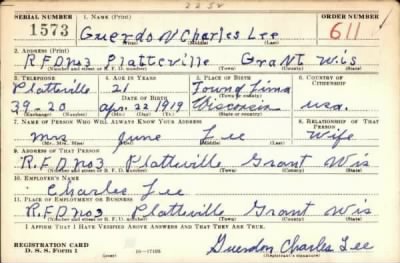 2252
SERIAL NUMBER 1. NAME (Print) ORDER NUMBER
1573 Guerdon Charles Lee 611
(First) (Middle) (Last)
2. ADDRESS (Print)
RFD no3 Platteville Grant Wis
(Number and street or R. F. D. number) (Town) (County) (State)
3. TELEPHONE 4. AGE IN YEARS 5. PLACE OF BIRTH 6. COUNTRY OF CITIZENSHIP
Platteville 21 Town of Lima
DATE OF BIRTH (Town or county)
39-20 Apr. 22 1919 Wisconsin usa.
(Exchange) (Number) (Mo.) (Day) (Yr.) (State or country)
7. NAME OF PERSON WHO WILL ALWAYS KNOW YOUR ADDRESS 8. RELATIONSHIP OF THAT PERSON
Mrs June Lee Wife
(Mr., Mrs., Miss) (First) (Middle) (Last)
9. ADDRESS OF THAT PERSON
R.F.D. no3 Platteville Grant Wis
(Number and street or R. F. D. number) (Town) (County) (State)
10. EMPLOYER'S NAME
Charles Lee
11. PLACE OF EMPLOYMENT OR BUSINESS
R.F.D no3 Platteville Grant Wis
(Number and street or R. F. D. number) (Town) (County) (State)
I AFFIRM THAT I HAVE VERIFIED ABOVE ANSWERS AND THAT THEY ARE TRUE.
REGISTRATION CARD
D. S. S. Form 1 (over) 16-17105 Guerdon Charles Lee
(Registrant's signature)